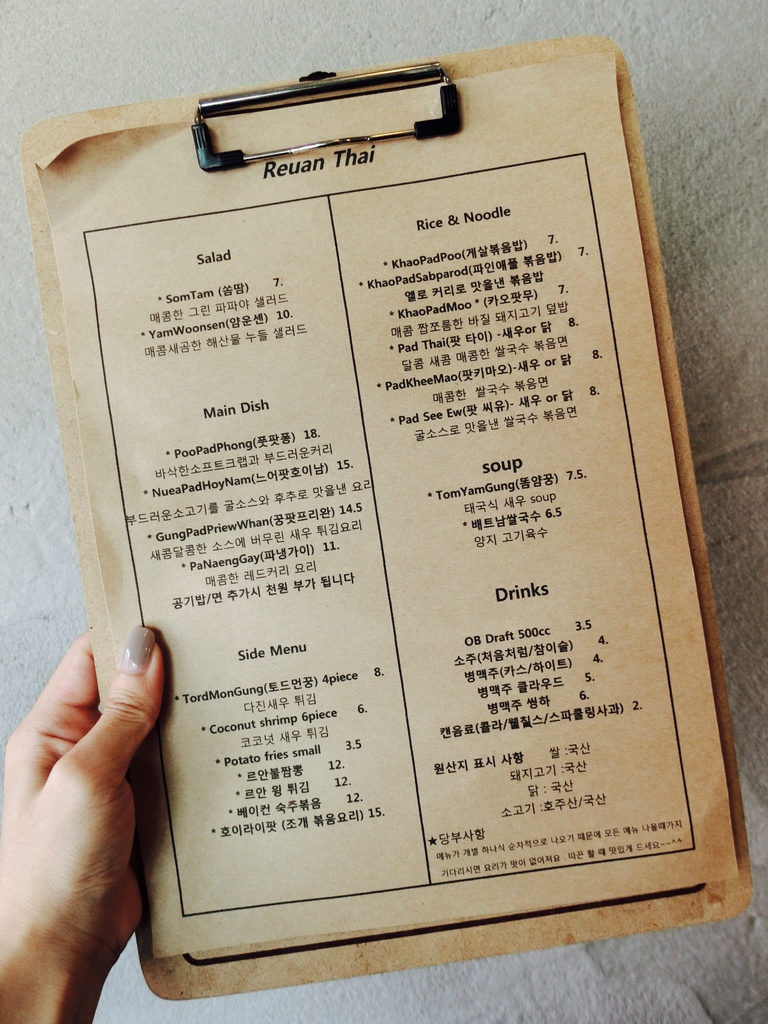 Reuan Thai
Salad
* SomTam (쏨땀) 7.
매콤한 그린 파파야 샐러드
* YamWoonsen(얌운센) 10.
매콤새콤한 해산물 누들 샐러드
Main Dish
* PooPadPhong(풋팟퐁) 18.
바삭한소프트크랩과 부드러운커리
* NueaPadHoyNam(느어팟호이남) 15.
부드러운소고기를 굴소스와 후추로 맛을낸 요리
* GungPadPriewWhan(꿍팟프리완) 14.5
새콤달콤한 소스에 버무린 새우 튀김요리
* PaNaengGay(파냉가이) 11.
매콤한 레드커리 요리
공기밥/면 추가시 천원 부가 됩니다
Side Menu
* TordMonGung(토드먼꿍) 4piece 8.
다진새우 튀김
* Coconut shrimp 6piece 6.
코코넛 새우 튀김
* Potato fries small 3.5
* 르안불짬뽕 12.
* 르안 윙 튀김 12.
* 베이컨 숙주볶음 12.
* 호이라이팟 (조개 볶음요리) 15.
Rice & Noodle
* KhaoPadPoo(게살볶음밥) 7.
* KhaoPadSabparod(파인애플 볶음밥) 7.
옐로 커리로 맛을낸 볶음밥
* KhaoPadMoo * (카오팟무) 7.
매콤 짭쪼름한 바질 돼지고기 덮밥
* Pad Thai(팟 타이) -새우or 닭 8.
달콤 새콤 매콤한 쌀국수 볶음면
* PadKheeMao(팟키마오)-새우 or 닭 8.
매콤한 쌀국수 볶음면
* Pad See Ew(팟 씨유)- 새우 or 닭 8.
굴소스로 맛을낸 쌀국수 볶음면
soup
* TomYamGung(똠얌꿍) 7.5.
태국식 새우 soup
* 배트남쌀국수 6.5
양지 고기육수
Drinks
OB Draft 500cc 3.5
소주(처음처럼/참이슬) 4.
병맥주(카스/하이트) 4.
병맥주 클라우드 5.
병맥주 씽하 6.
캔음료(콜라/웰칠스/스파클링사과) 2.
원산지 표시 사항 쌀 :국산
돼지고기 :국산
닭 : 국산
소고기 :호주산/국산
★당부사항
메뉴가 개별 하나식 순차적으로 나오기 때문에 모든 메뉴 나올때가지
기다리시면 요리가 맛이 없어져요 . 따끈 할 때 맛있게 드세요~~^^